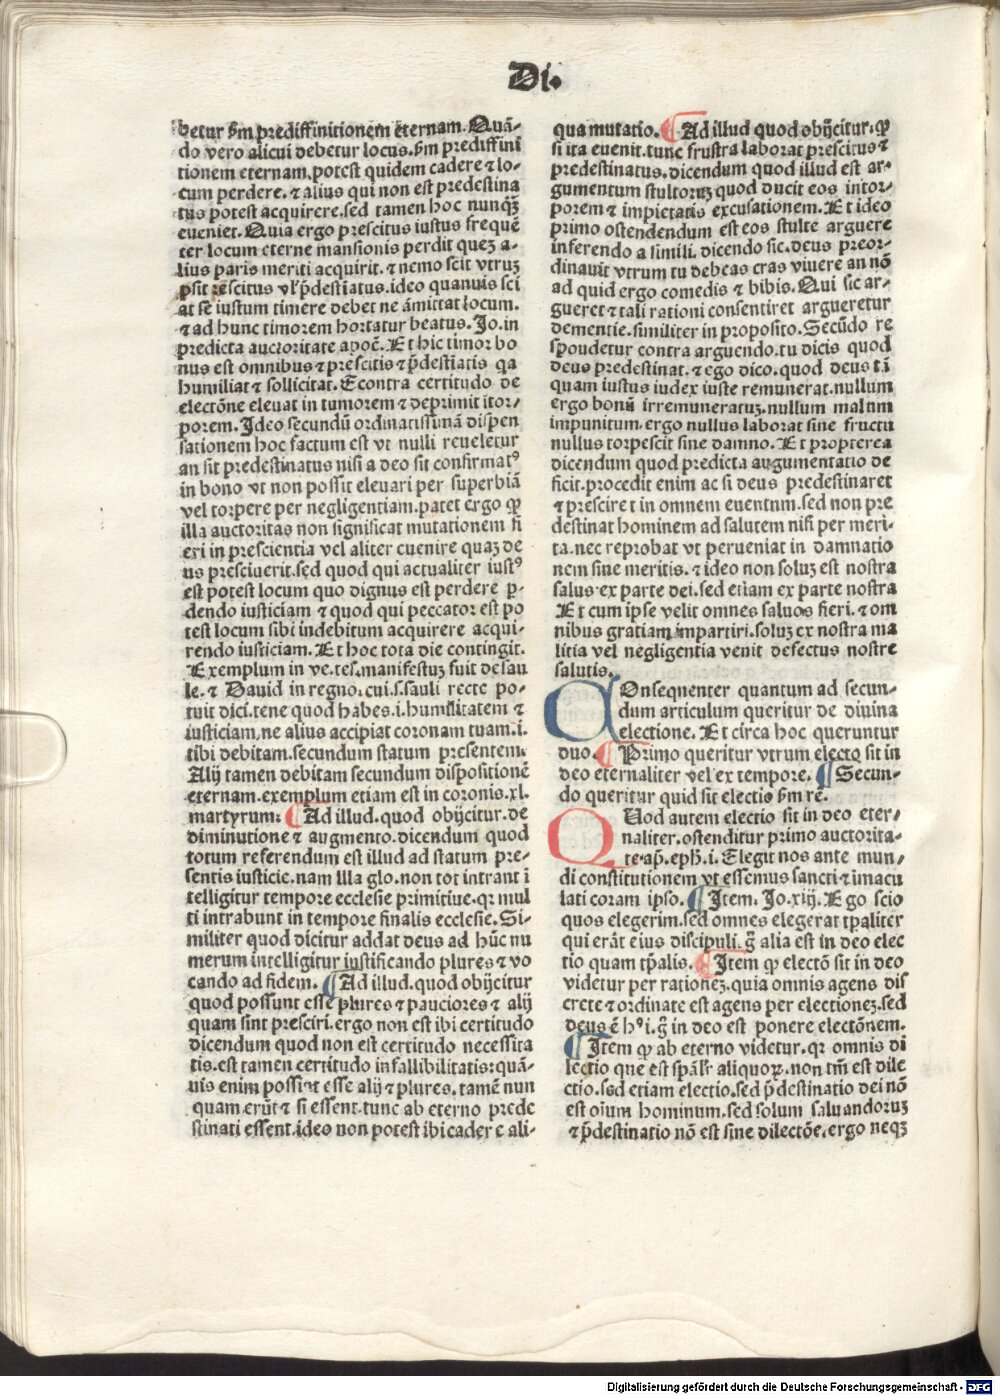 Di.
betur ẜm prediffinitionem eternam. Quã-
do vero alicui debetur locus. ẜm prediffini
tionem eternam, potest quidem cadere ⁊ lo-
cum perdere. ⁊ alius qui non est predestina
tus potest acquirere. sed tamen hoc nunqꝫ̃
eueniet. Quia ergo prescitus iustus frequẽ
ter locum eterne mansionis perdit quez a-
lius paris meriti acquirit. ⁊ nemo scit vtruꝫ
psit rescitus vl' p̃destiatus. ideo quanuis sci
at se iustum timere debet ne ãmittat locum.
⁊ ad hunc timorem hortatur beatus. Jo. in
predicta auctoritate apoc̃. Et hic timor bo
nus est omnibus ⁊ prescitis ⁊ p̃destiatis qa
humiliat ⁊ sollicitat. Econtra certitudo de
electõne eleuat in tumorem ⁊ deprimit itor-
porem. Jdeo secundũ ordinatissimã dispen
sationem hoc factum est vt nulli reueletur
an sit predestinatus nisi a deo sit confirmatꝰ
in bono vt non possit eleuari per superbiã
vel torpere per negligentiam. patet ergo ꝙ
illa auctoritas non significat mutationem fi
eri in prescientia vel aliter euenire quaꝫ de
us presciuerit. sed quod qui actualiter iustꝰ
est potest locum quo dignus est perdere p-
dendo iusticiam ⁊ quod qui peccator est po
test locum sibi indebitum acquirere acqui-
rendo iusticiam. Et hoc tota die contingit.
Exemplum in ve. tes. manifestuꝫ fuit de sau
le. ⁊ Dauid in regno. cui. s. sauli recte po-
tuit dici. tene quod habes. i. humilitatem ⁊
iusticiam, ne alius accipiat coronam tuam. i.
tibi debitam. secundum statum presentem.
Alij tamen debitam secundum dispositionẽ
eternam. exemplum etiam est in coronis. xl.
martyrum: ¶ Ad illud. quod obijcitur. de
diminutione ⁊ augmento. dicendum quod
totum referendum est illud ad statum pre-
sentis iusticie. nam illa glo. non tot intrant i
telligitur tempore ecclesie primitiue. qꝛ mul
ti intrabunt in tempore finalis ecclesie. Si-
militer quod dicitur addat deus ad hũc nu
merum intelligitur iustificando plures ⁊ vo
cando ad fidem. ¶ Ad illud. quod obijcitur
quod possunt esse plures ⁊ pauciores ⁊ alij
quam sint presciri. ergo non est ibi certitudo
dicendum quod non est certitudo necessita
tis. est tamen certitudo infallibilitatis: quã-
uis enim possint esse alij ⁊ plures. tamẽ nun
quam erũt ⁊ si essent. tunc ab eterno prede
stinati essent. ideo non potest ibi cadere ali-
qua mutatio. ¶ Ad illud quod obijcitur. ꝙ
si ita euenit. tunc frustra laborat prescitus ⁊
predestinatus. dicendum quod illud est ar-
gumentum stultoruꝫ quod ducit eos intor-
porem ⁊ impietatis excusationem. Et ideo
primo ostendendum est eos stulte arguere
inferendo a simili. dicendo sic. deus preor-
dinauit vtrum tu debeas cras viuere an nõ
ad quid ergo comedis ⁊ bibis. Qui sic ar-
gueret ⁊ tali rationi consentiret argueretur
dementie. similiter in proposito. Secũdo re
spoudetur contra arguendo. tu dicis quod
deus predestinat. ⁊ ego dico. quod deus tã
quam iustus iudex iuste remunerat. nullum
ergo bonũ irremuneratuꝫ. nullum malum
impunitum. ergo nullus laborat sine fructu
nullus torpescit sine damno. Et propterea
dicendum quod predicta augumentatio de
ficit. procedit enim ac si deus predestinaret
⁊ presciret in omnem euentum. sed non pre
destinat hominem ad salutem nisi per meri-
ta. nec reprobat vt perueniat in damnatio
nem sine meritis. ⁊ ideo non soluꝫ est nostra
salus ex parte dei. sed etiam ex parte nostra
Et cum ipse velit omnes saluos fieri. ⁊ om
nibus gratiam impartiri. soluꝫ ex nostra ma
litia vel negligentia venit defectus nostre
salutis.
COnseqnenter quantum ad secun-
dum articulum queritur de diuina
electione. Et circa hoc queruntur
duo. ¶ Primo queritur vtrum electo sit in
deo eternaliter vel ex tempore. ¶ Secun-
do queritur quid sit electio ẜm re.
QUod autem electio sit in deo eter-
naliter. ostenditur primo auctorita-
te ap̃. eph. i. Elegit nos ante mun-
di constitutionem vt essemus sancti ⁊ imacu
lati coram ipso. ¶ Jtem. Jo. xiij. Ego scio
quos elegerim. sed omnes elegerat tp̃aliter
qui erãt eius discipuli. g̃ alia est in deo elec
tio quam tp̃alis. ¶ Jtem ꝙ electõ sit in deo
videtur per rationeꝫ. quia omnis agens dis
crete ⁊ ordinate est agens per electioneꝫ. sed
deus ẽ hꝰi. g̃ in deo est ponere electõnem.
¶ Jtem ꝙ ab eterno videtur. qꝛ omnis di
lectio que est sp̃al'r aliquoꝝ. non tm̃ est dile
ctio. sed etiam electio. sed p̃destinatio dei nõ
est oĩum hominum. sed solum saluandoruꝫ
⁊ p̃destinatio nõ est sine dilectõe. ergo neqꝫ
Digitalisierung gefördert durch die Deutsche Forschungsgemeinschaft - DFG